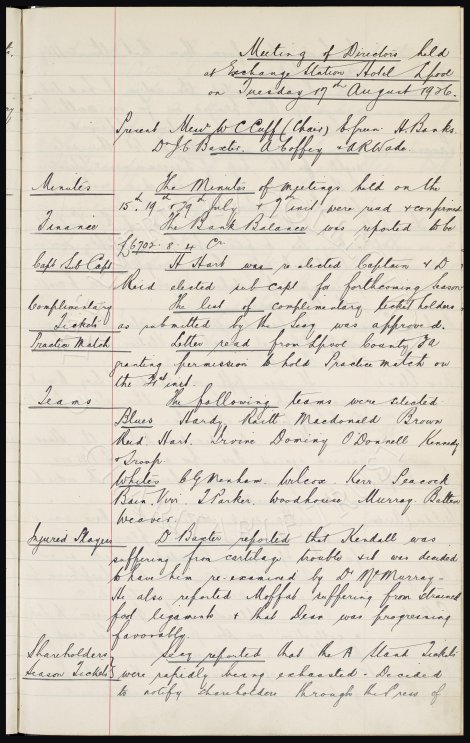 Meeting of Directors held
at Exchange Station Hotel Lpool
on Tuesday 17th August 1926.
Present Messrs W C Cuff (Chair) E Green H. Banks.
Dr J C Baxter, A Coffey & A R Wade.
Minutes The Minutes of meetings held on the
15th, 19th & 29th July & 9th inst were read & confirmed
Finance The Bank Balance was reported to be
£6702. 8. 4 Cr
Capt Sub Capt H Hart was re-elected Captain & D
Reid elected sub capt for forthcoming season
Complimentary The list of complimentary ticket holders
Tickets as submitted by the Secy was approved.
Practice Match Letter read from Lpool County FA
granting permission to hold Practice match on
the inst.
Teams The following teams were selected
Blues Hardy Raitt Macdonald Brown
Reid Hart. Irvine Dominy O'Donnell Kennedy
& Troup
Whites C G Menham. Wilcox Kerr Peacock
Bain. Virr. J Parker. Woodhouse Murray Batten
Weaver.
Injured Players Dr Baxter reported that Kendall was
suffering from cartilage trouble & it was decided
to have him re-examined by Dr McMurray -
He also reported Moffat suffering from strained
foot ligaments & that Dean was progressing
favorably.
Shareholders Secy reported that the A Stand Tickets
Season Tickets} were rapidly being exhausted. Decided
to notify shareholders through the Press of